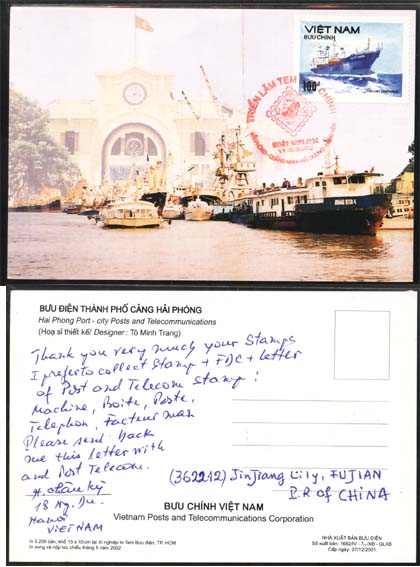 VIỆT NAM
BƯU CHÍNH
100đ
TRIỂN LÃM TEM BƯU CHÍNH
BƯU ĐIỆN THÀNH PHỐ CẢNG HẢI PHÒNG
Hai Phong Port - city Posts and Telecommunications
(Hoạ sĩ thiết kế/ Designer : Tô Minh Trang)
Thank you very much your Stamps
I prefer to collect Stamp + FDC + letter
of Post and Telecom Stamp:
Machine, Boite, Poste,
Telephon, Facteur man
Please send back
me this letter with
and Post Telecom.
18
Hanoi
VIETNAM
(362212) JinJiang City, FUJIAN
P.R of CHINA
BƯU CHÍNH VIỆT NAM
Vietnam Posts and Telecommunications Corporation
In 5.200 bản, khổ 15 x 10 cm tại Xí nghiệp In Tem Bưu điện, TP. HCM
In xong và nộp lưu chiểu tháng 5 năm 2002
NHÀ XUẤT BẢN BƯU ĐIỆN
Cấp ngày: 07/12/2001